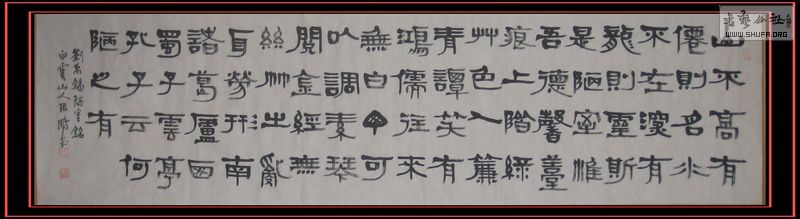 山不高有
僊則名水
不在深有
龍則靈斯
是陋室惟
吾德馨薹
痕上階綠
艸色入簾
青譚笑有
鴻儒往來
無白丁可
以調素琴
閱金經無
絲竹之亂
耳勞形南
諸葛廬西
蜀子雲亭
孔子云何
陋之有
劉禹錫陋室銘
白雲山人
WWW.SHUFA.ORG